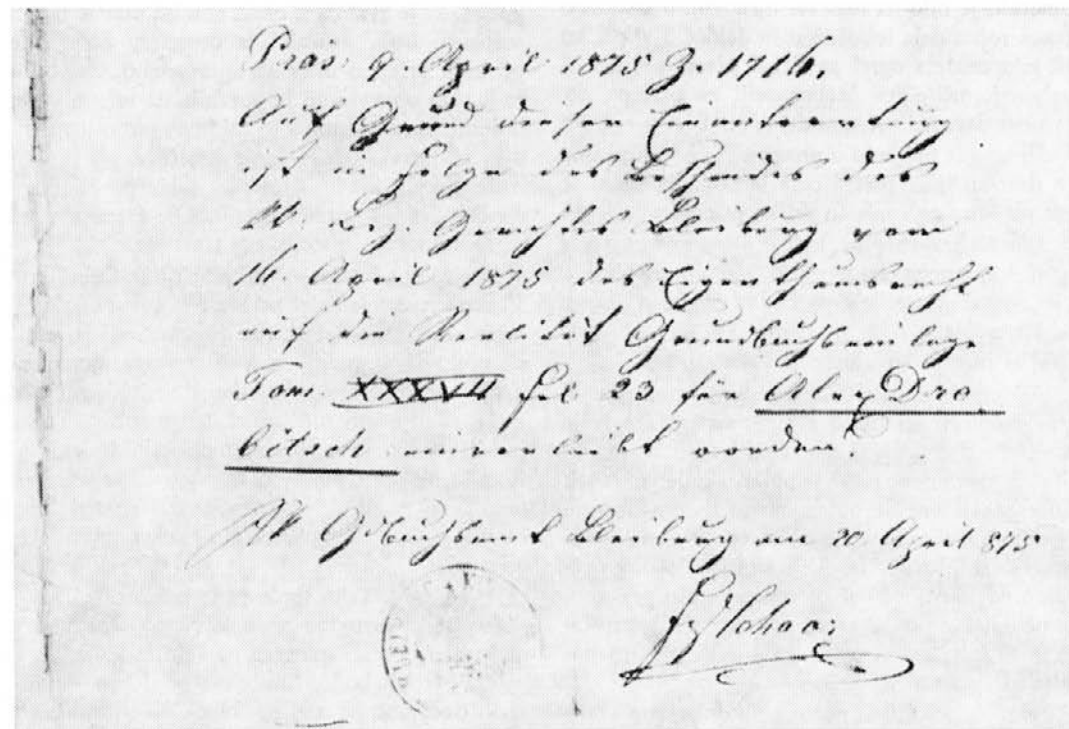 Präs. 9. April 1875 Z. 1716.
Auf Grund dieser Einantwortung
ist in Folge des Bescheides des
kk. Bez. Gerichtes Bleiburg vom
16. April 1875 das Eigenthumsrecht
auf die Realität Grundbuchseinlage
Tom. XXXVII fol. 23 für Alex Dra¬
bitsch einverleibt worden.
kk Gdbuchsamt Bleiburg am 20. April 875